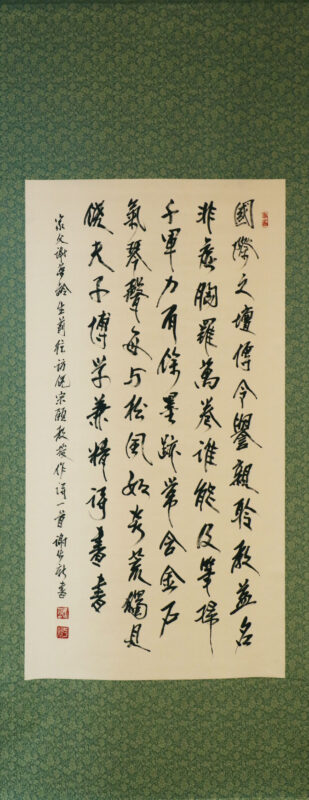 國際之壇傳令譽親聆教益名
非虛胸羅萬卷誰能及筆掃
千軍力有餘墨跡常含金石
氣琴聲每與松風如炎荒獨見
饒夫子博學兼精詩畫書
家父謝生前往訪饒宗頤教授作詩一首謝書